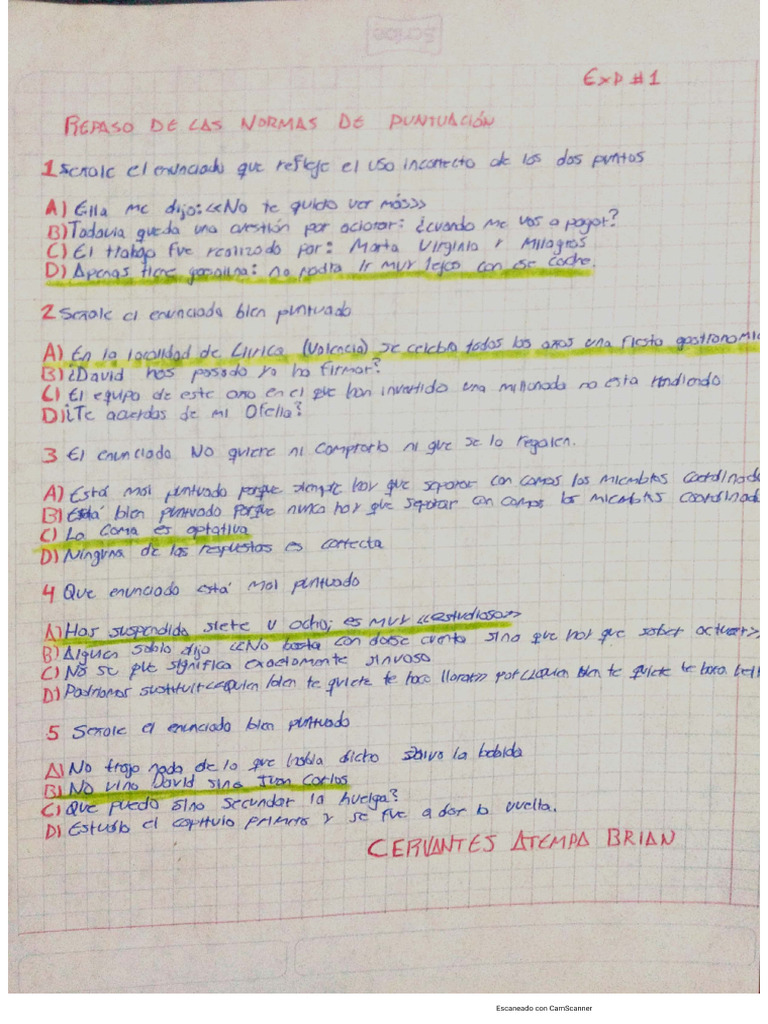 Scribe
EXP #1
REPASO DE LAS NORMAS DE PUNTUACIÓN
1 Señale el enunciado que refleje el uso incorrecto de los dos puntos
A) Ella me dijo: «No te quiero ver más»
B) Todavia queda una cuestión por aclarar: ¿cuando me vas a pagar?
C) El trabajo fue realizado por: Marta Virginia y Milagros
D) Apenas tiene gasolina: no podra ir muy lejos con ese coche.
2 Señale el enunciado bien puntuado
A) En la localidad de (Valencia) se celebra todos los años una fiesta gastronomic
B) ¿David has pasado ya ha firmar?
C) El equipo de este año en el que han invertido una millonada no esta rindiendo
D) ¿Te acuerdas de mi Ofelia?
3 El enunciado No quiere ni comprarlo ni que se lo regalen.
A) Está mal puntuado porque siempre hay que separar con comas los miembros coordinado
B) Está bien puntuado porque nunca hay que separar con comas los miembros coordinad
C) La coma es optativa
D) Ninguna de las respuestas es correcta
4 Que enunciado está mal puntuado
A) Has suspendido siete u ocho; es muy «estudioso»
B) Alguien sabio dijo «No basta con darse cuenta sino que hay que saber actuar»
C) No se que significa exactamente sinuoso
D) Podriamos sustituir «quien bien te quiere te hara llorar» por «quien bien te quiere te hara
5 Señale el enunciado bien puntuado
A) No trajo nada de lo que habia dicho salvo la bebida
B) No vino David sino Juan Carlos
C) Que puedo sino secundar la huelga?
D) Estudio el capitulo primero y se fue a dar la vuelta.
CERVANTES ATEMPA BRIAN
Escaneado con CamScanner